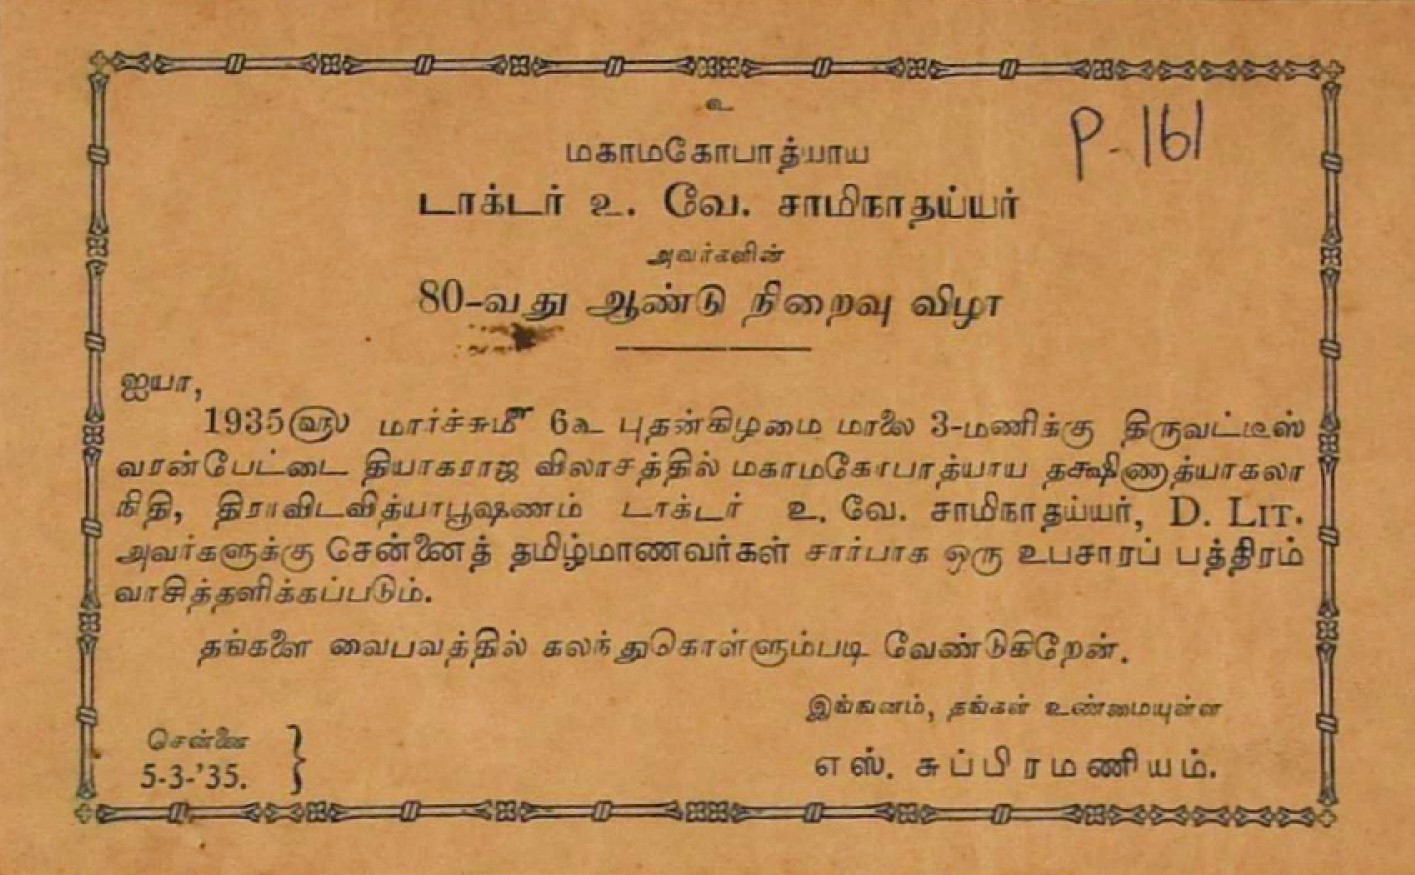 உ
P-161
மகாமகோபாத்யாய
டாக்டர் உ. வே. சாமிநாதய்யர்
அவர்களின்
80-வது ஆண்டு நிறைவு விழா
ஐயா,
1935௵ மார்ச்சு௴ 6௳ புதன்கிழமை மாலை 3-மணிக்கு திருவட்டீஸ்
வரன்பேட்டை தியாகராஜ விலாசத்தில் மகாமகோபாத்யாய தக்ஷிணாத்யாகலா
நிதி, திராவிடவித்யாபூஷணம் டாக்டர் உ. வே. சாமிநாதய்யர், D. LIT.
அவர்களுக்கு சென்னைத் தமிழ்மாணவர்கள் சார்பாக ஒரு உபசாரப் பத்திரம்
வாசித்தளிக்கப்படும்.
தங்களை வைபவத்தில் கலந்துகொள்ளும்படி வேண்டுகிறேன்.
இங்ஙனம், தங்கள் உண்மையுள்ள
எஸ். சுப்பிரமணியம்.
சென்னை
5-3-'35. }